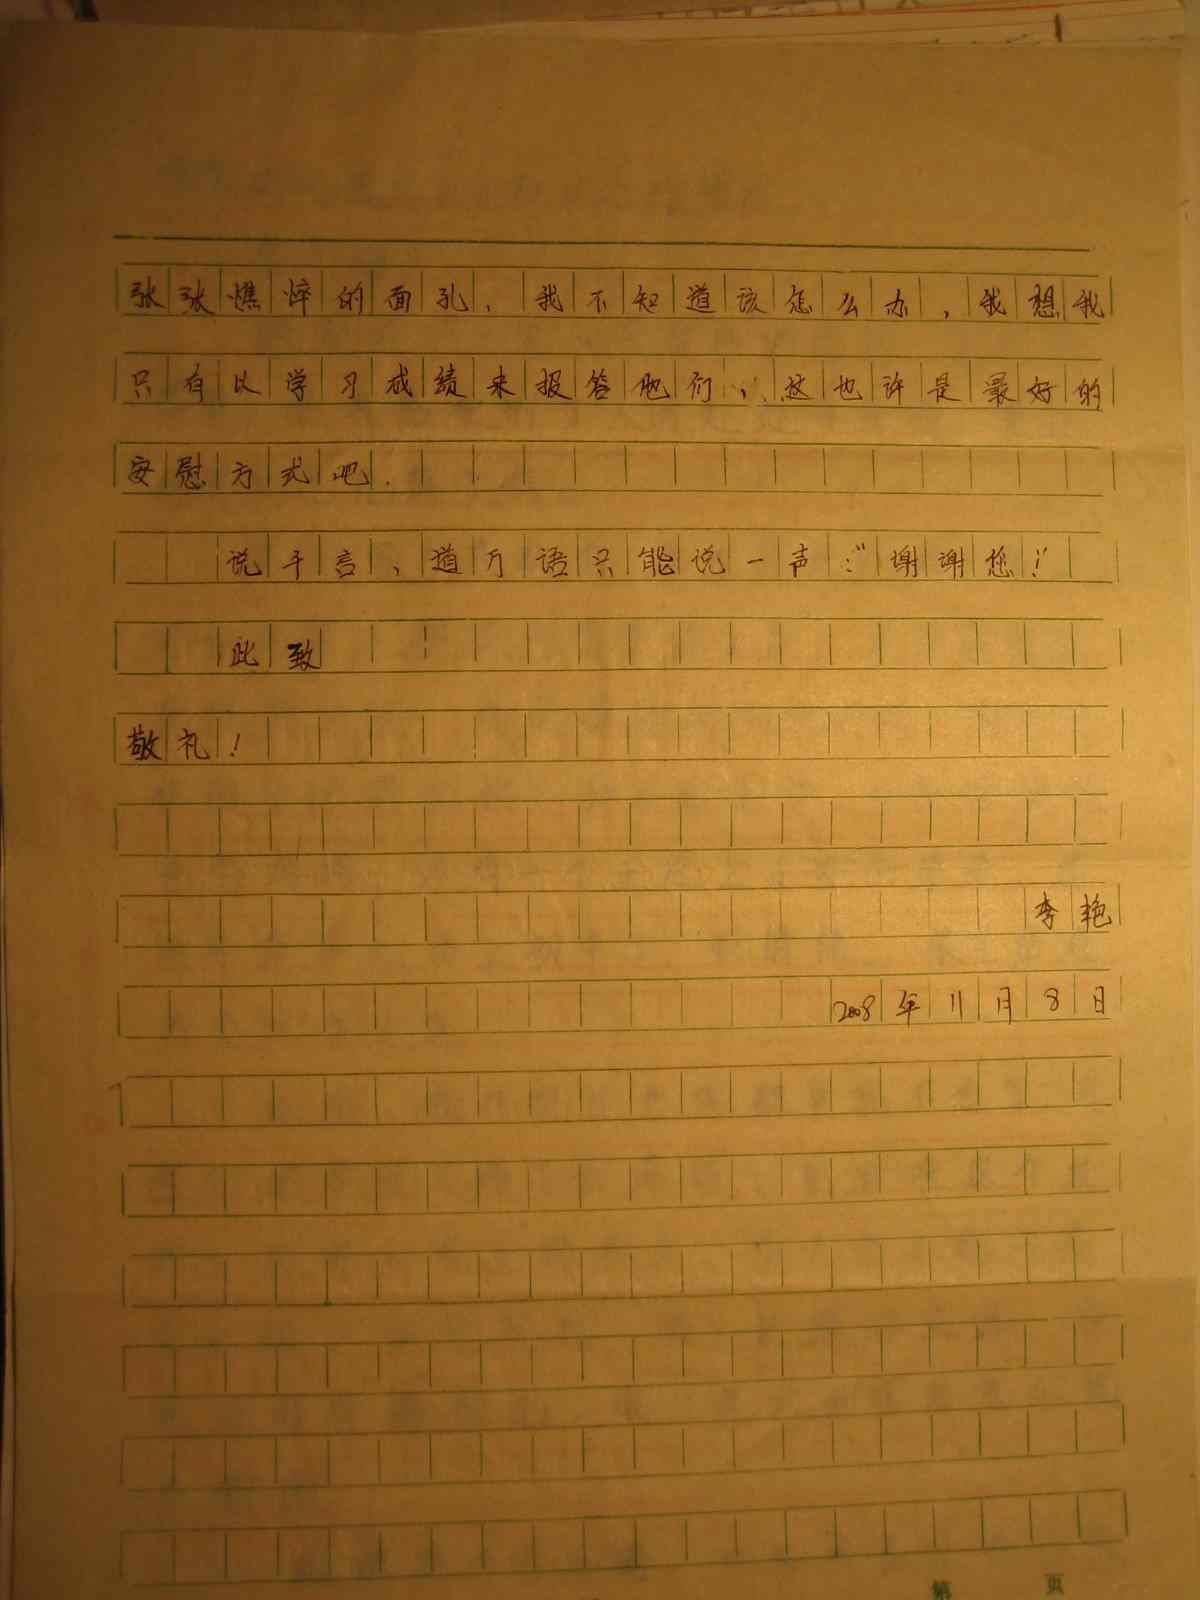 张张憔悴的面孔，我不知道该怎么办，我想我
只有以学习成绩来报答他们，这也许是最好的
安慰方式吧.
说千言、道万语只能说一声:“谢谢您!”
此致
敬礼!
李艳
2008年11月8日
第 页